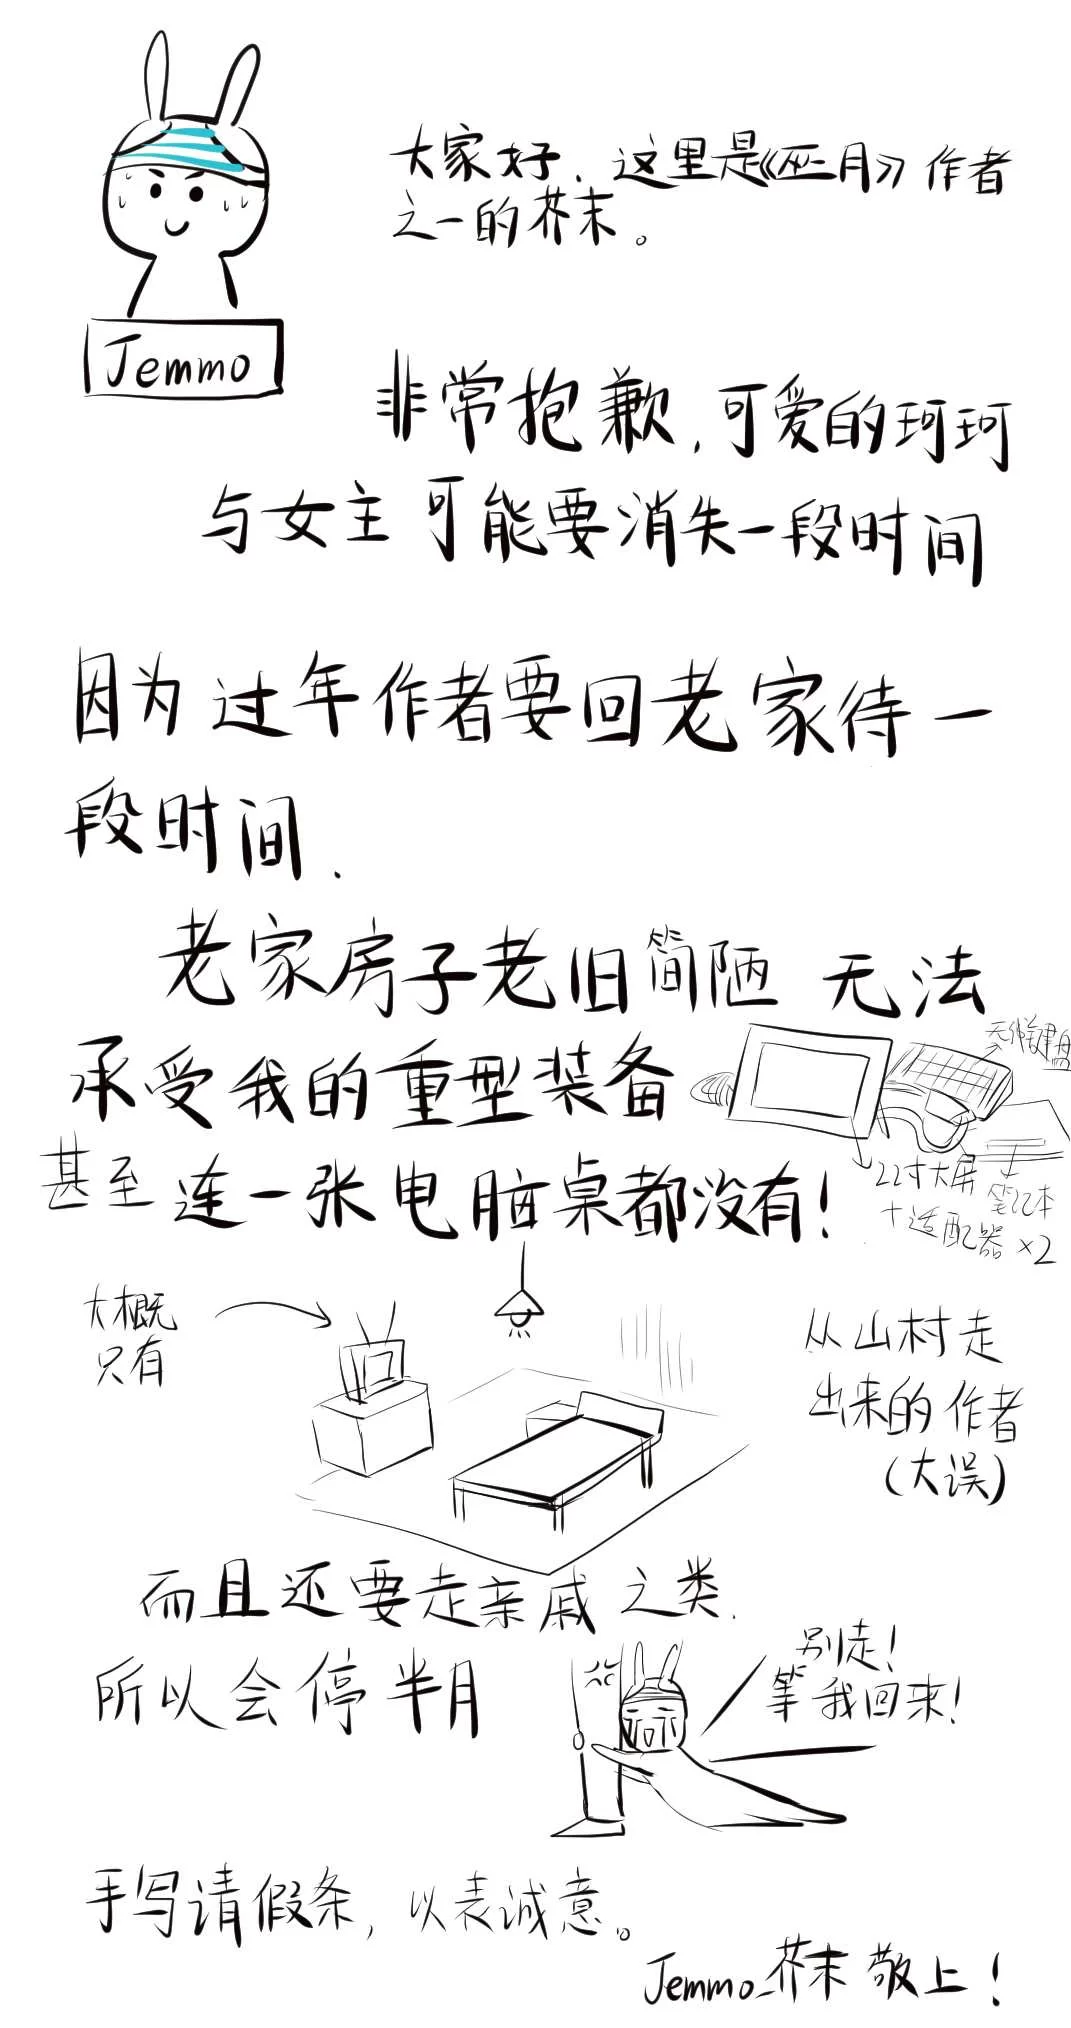 大家好、这里是《巫月》作者
之一的芥末。
Jemmo
非常抱歉,可爱的珂珂
与女主可能要消失一段时间
因为过年作者要回老家待一
段时间.
老家房子老旧简陋 无法
承受我的重型装备
无线键盘
22寸大屏
+适配器×2
笔记本
甚至连一张电脑桌都没有!
大概
只有
从山村走
出来的作者
(大误)
而且还要走亲戚之类.
所以会停半月
别走!
等我回来!
手写请假条,以表诚意。
Jemmo_芥末 敬上!